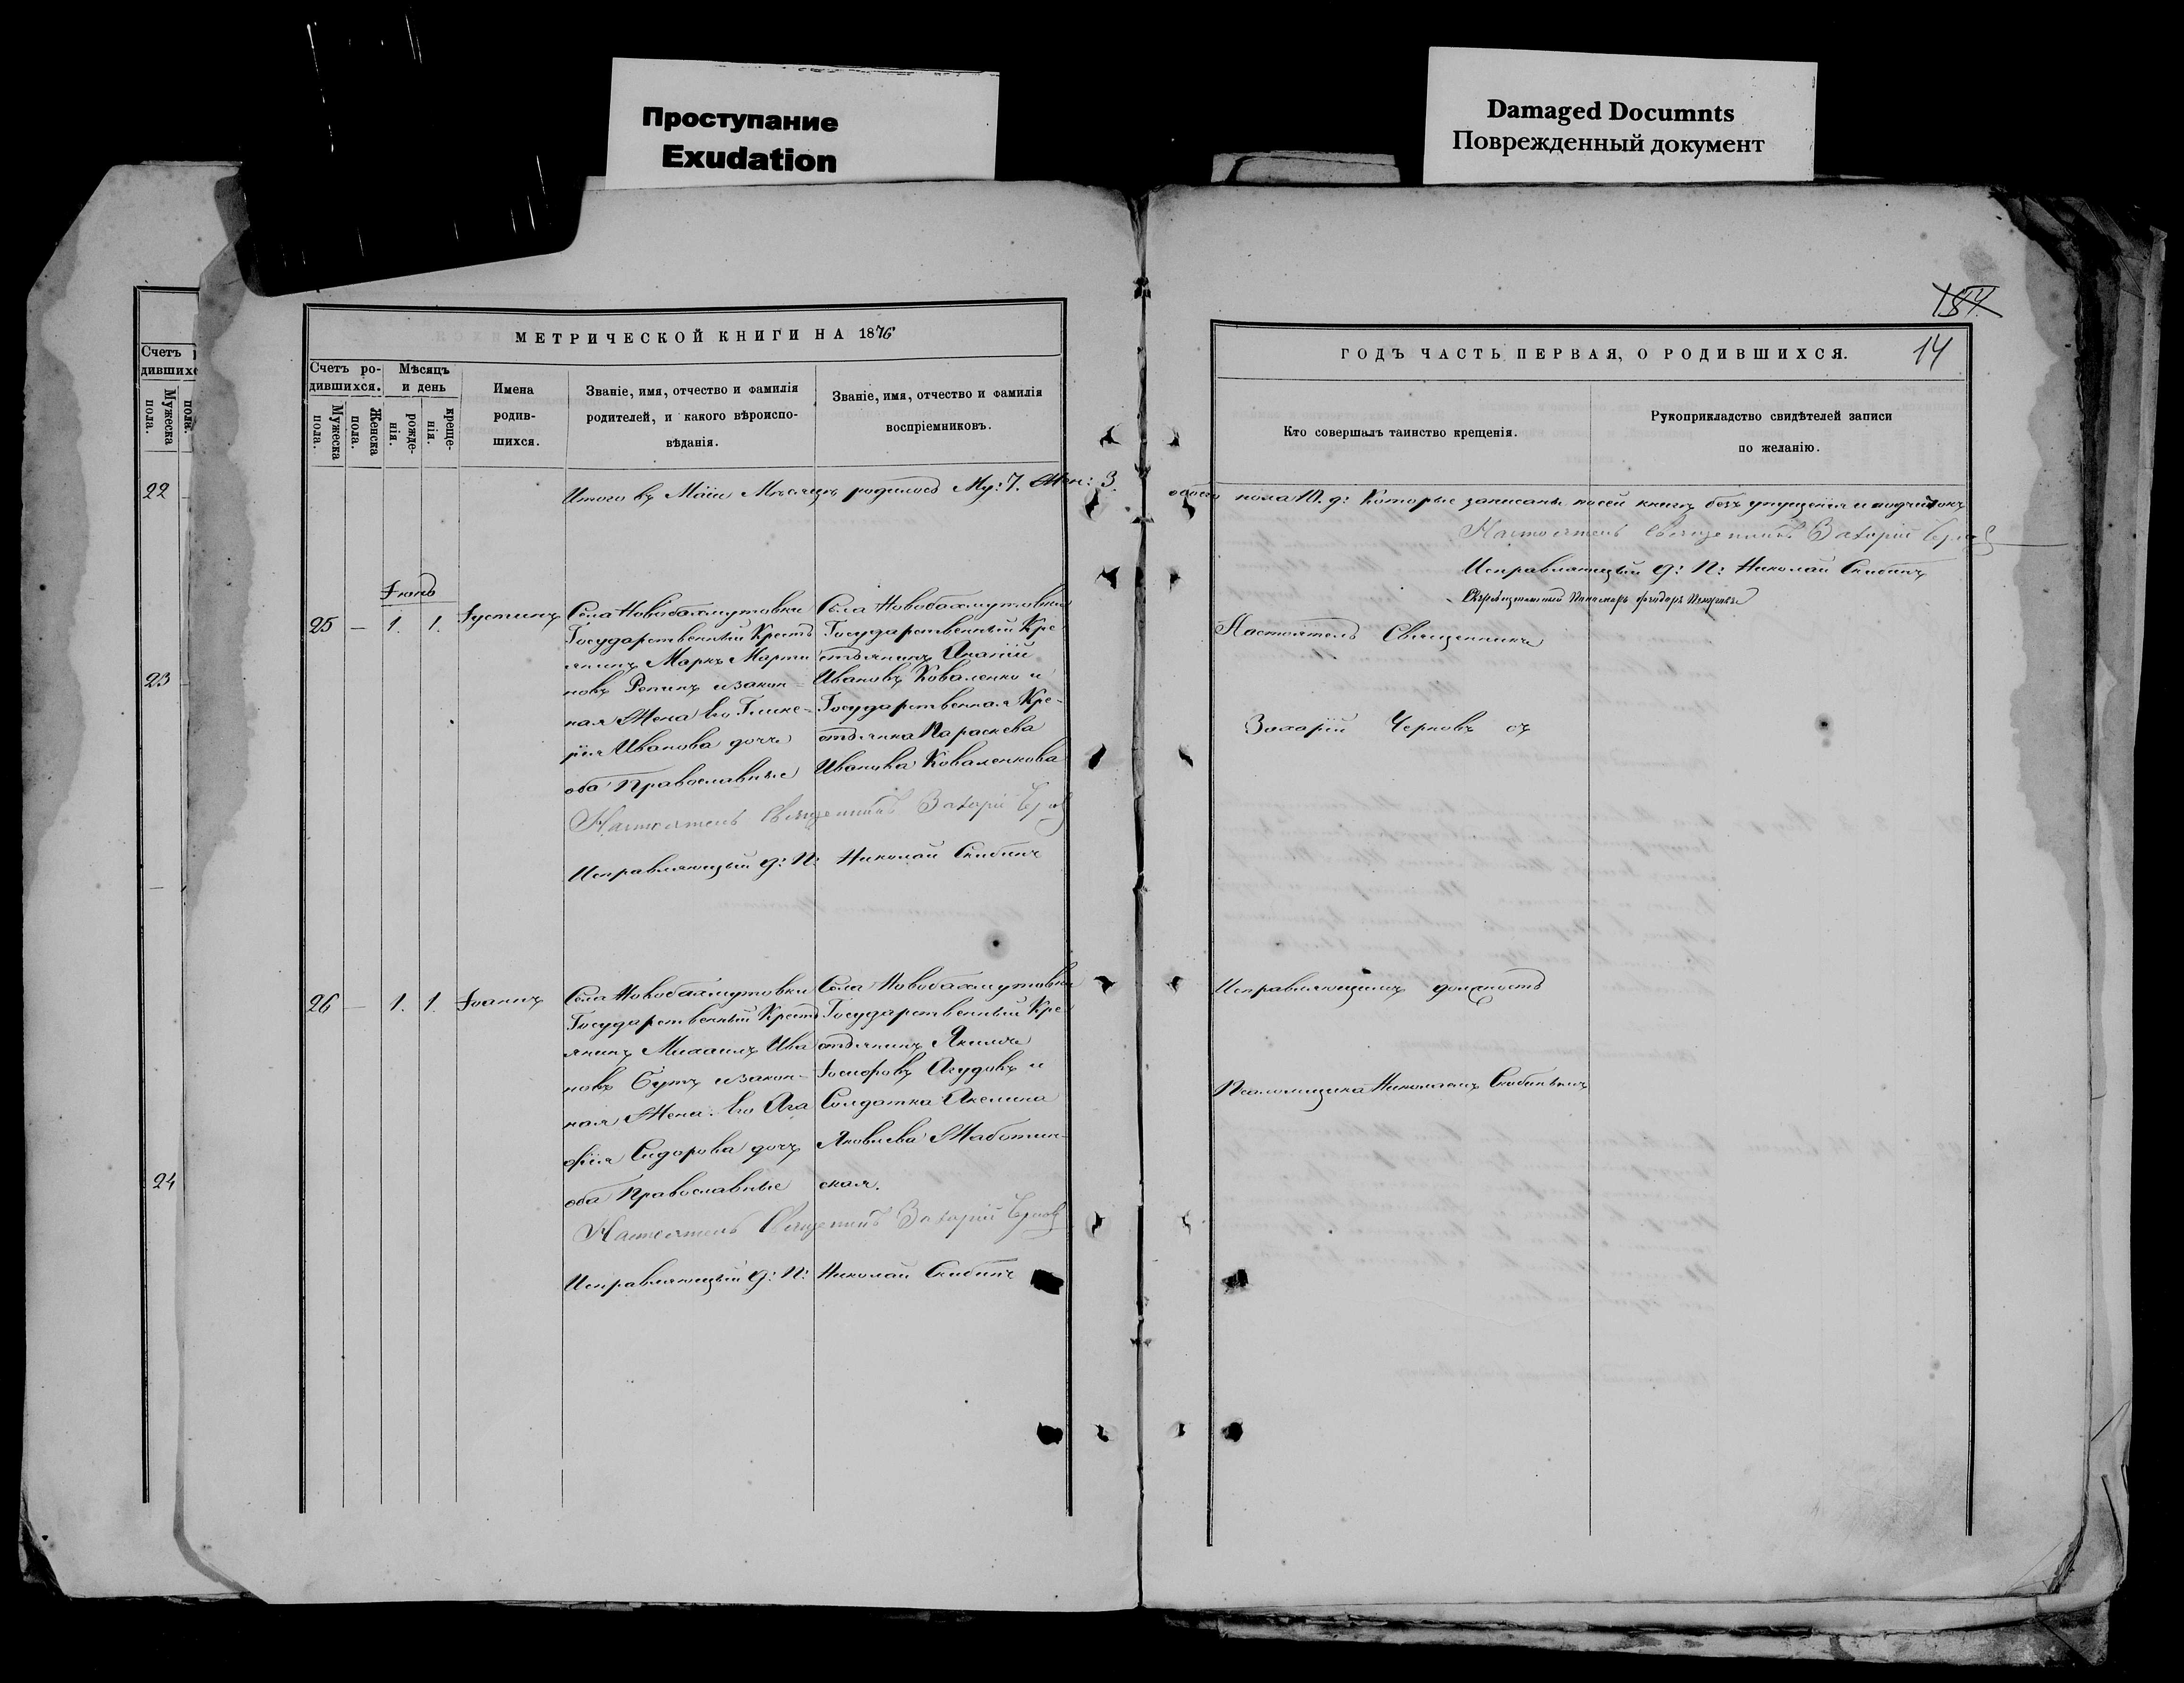 Проступание
Exudation
Damaged Documnts
Поврежденный документ
МЕТРИЧЕСКОЙ КНИГИ НА 1876
Счетъ ро-
дившихся.
Мужеска
пола.
Женска
пола.
Мѣсяцъ
и день
рожде-
нія.
креще-
нія.
Имена
родив-
шихся.
Званіе, имя, отчество и фамилія
родителей, и какого вѣроиспо-
вѣданія.
Званіе, имя, отчество и фамилія
воспріемниковъ.
Итого въ Маіи Мѣсяцѣ родилось Му: 7. Жен: 3.
Іюнь
25 — 1. 1.
Іустинъ
Села Новобахмутовки
Государственный Кресть
янинъ Маркъ Марти
новъ Репинъ и закон-
ная Жена Его Глике-
рія Иванова дочь
оба Православные
Села Новобахмутовки
Государственный Кре
стьянинъ
Ивановъ Коваленко и
Государственная Кре-
стьянка Параскева
Иванова Коваленкова
Настоятель Священникъ Захарій Черновъ
Исправляющій д: П: Николай Скибинъ
26 — 1. 1.
Іоаннъ
Села Новобахмутовки
Государственный Кресть
янинъ Михаилъ Ива
новъ Бутъ и закон-
ная Жена Его Ага
фія Сидорова дочь
оба Православные
Села Новобахмутовки
Государственный Кре
стьянинъ Якимъ
Іосифовъ и
Солдатка Акелина
Яковлева Жаботин-
ская.
Настоятель Священникъ Захарій Черновъ
Исправляющій д: П: Николай Скибинъ
Счетъ
дившихс
Мужеска
пола.
22
23
24
14
ГОДЪ ЧАСТЬ ПЕРВАЯ, О РОДИВШИХСЯ.
Кто совершалъ таинство крещенія.
Рукоприкладство свидѣтелей записи
по желанію.
обоего пола 10. д: Которые записаны по сей книгѣ безъ упущенія и подчистокъ
Настоятель Священникъ Захарій Черновъ
Исправляющій д: П: Николай Скибинъ
Сверхштатный Пономарь
Настоятель Священникъ
Захарій Черновъ съ
Исправляющимъ должность
Псаломщика Николаемъ Скибинымъ